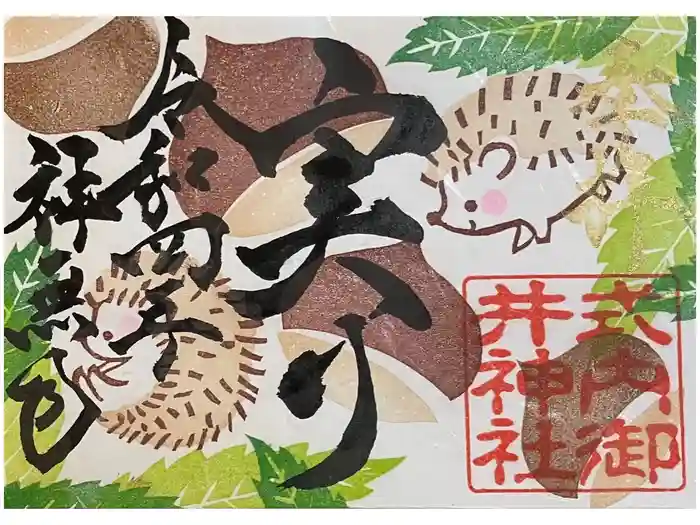 式内御
井神社
実り
令和四年
神無月